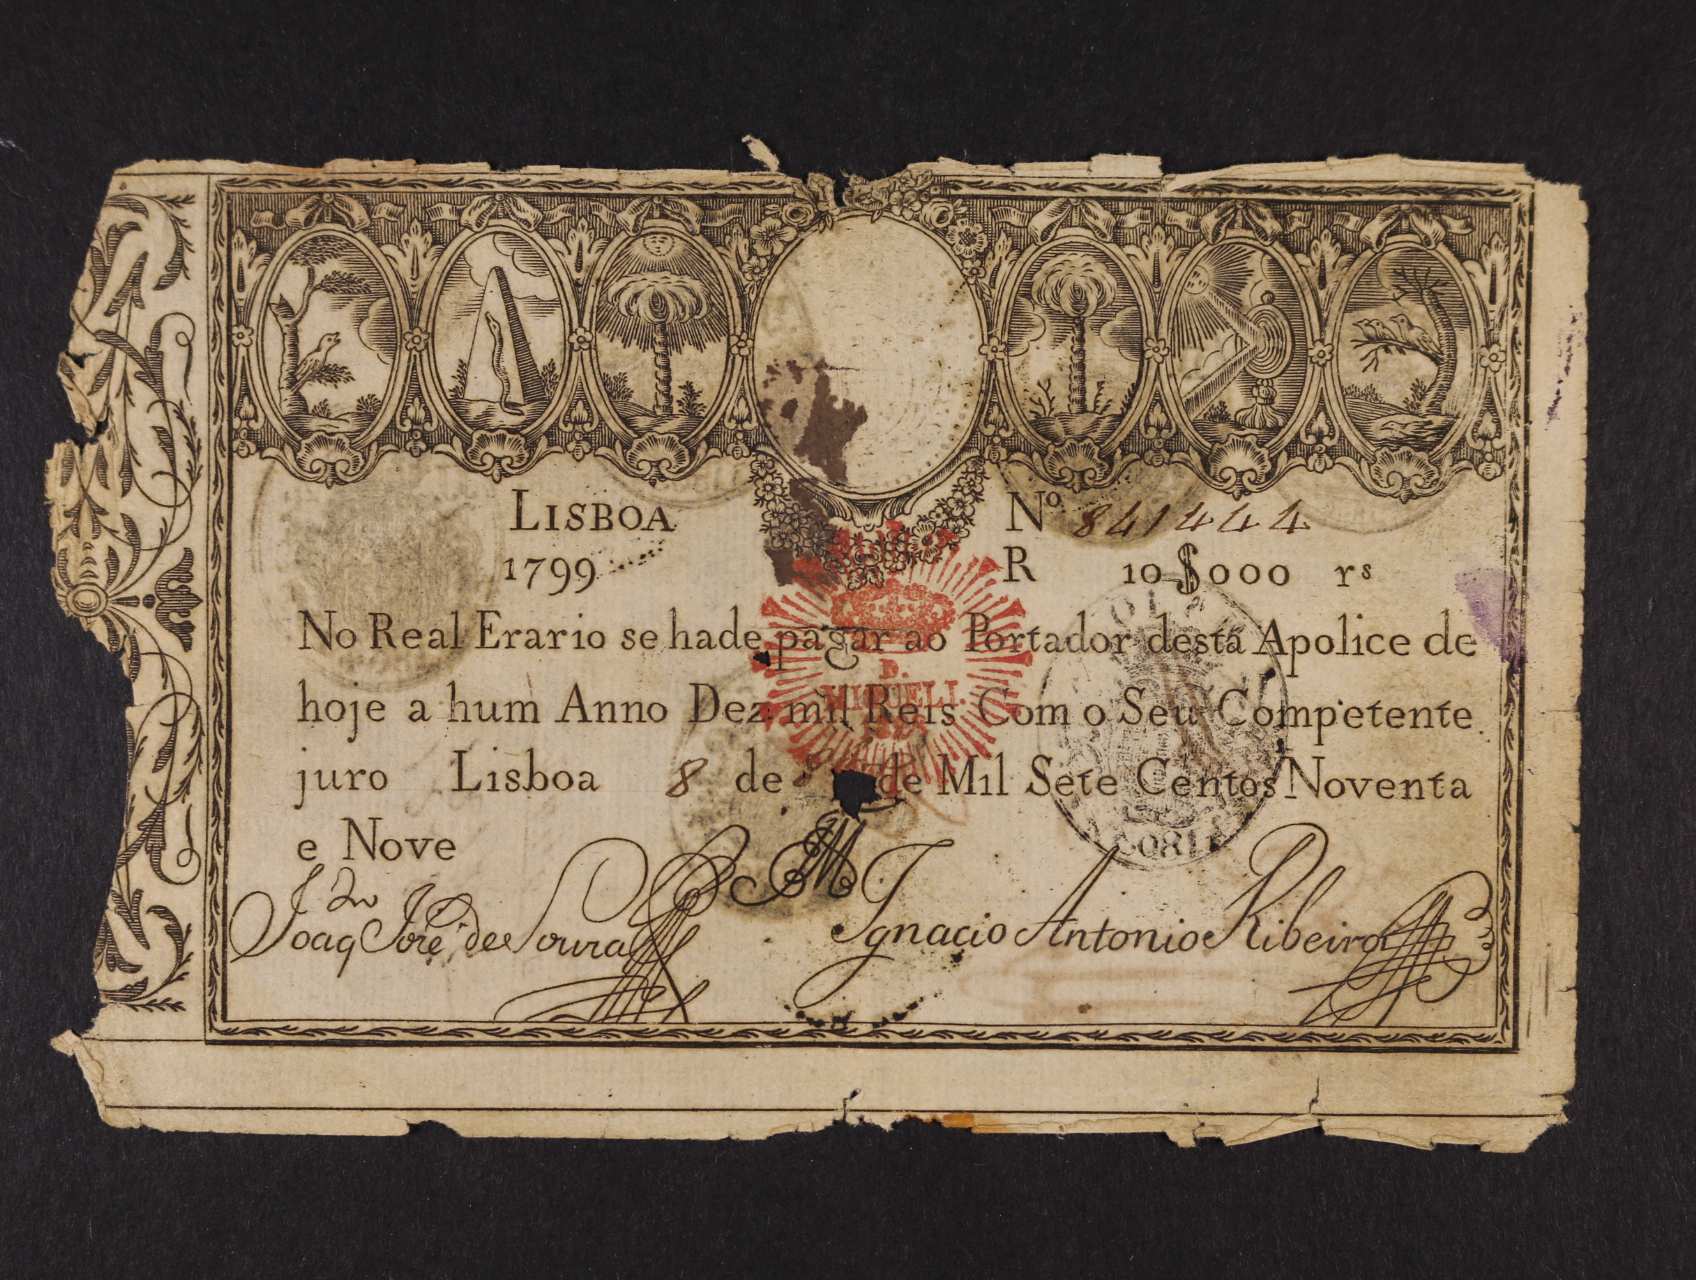 LISBOA Nº 841444
1799 R 10$000 rs
No Real Erario se hade pagar ao Portador desta Apolice de
D.
MIGUEL I.
hoje a hum Anno Dez mil Reis Com o Seu Competente
juro Lisboa 8 de de Mil Sete Centos Noventa
e Nove
Joaq José de Souza Ignacio Antonio Ribeiro